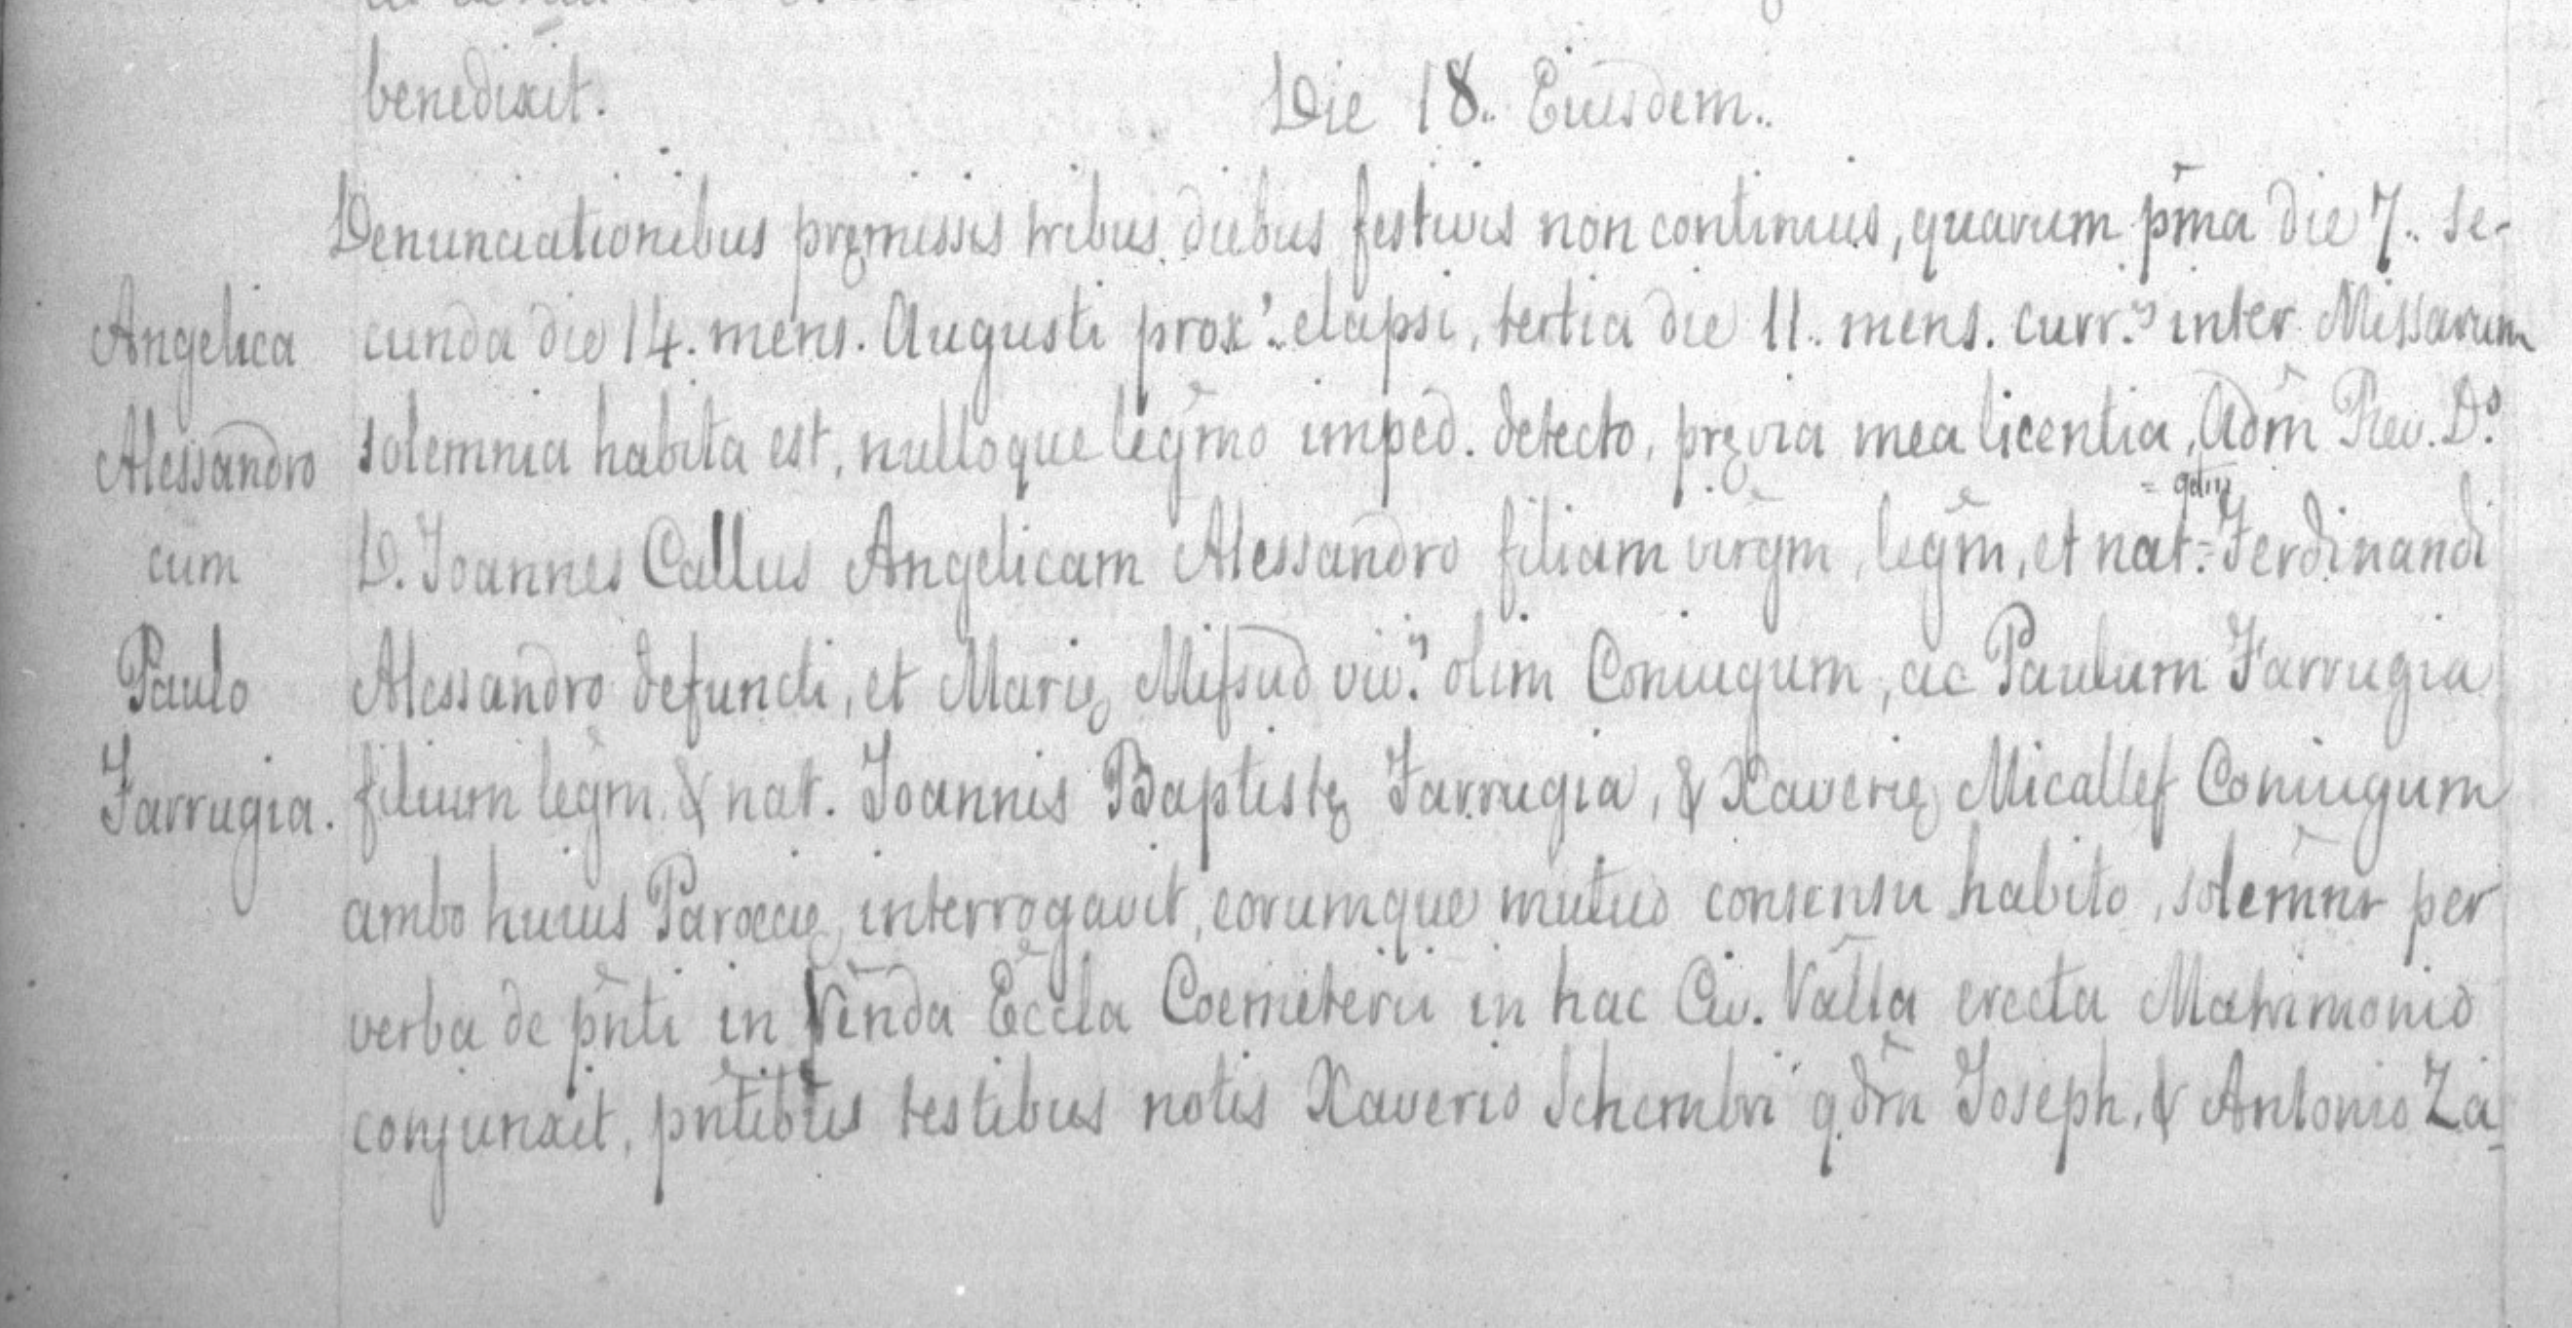 benedixit. Die 18. Eiusdem.
Denunciationibus premissis tribus diebus festivis non continuis, quarum pma die 7. se-
cunda die 14. mens. Augusti prox. elapsi, tertia die 11. mens. curr. inter Missarum
solemnia habita est, nulloque legmo imped. detecto, previa mea licentia, Adm Rev. Ds
=qdm
D. Joannes Callus Angelicam Alessandro filiam virgm, legm, et nat.= Ferdinandi
Alessandro defuncti, et Marię Mifsud viv. olim Coniugum, ac Paulum Farrugia
filium legm. & nat. Joannis Baptistę Farrugia, & Xaverię Micallef Coniugum
ambo huius Paroecię interrogavit, eorumque mutuo consensu habito, solemnr per
verba de pnti in Venda Eccla Coemeterii in hac Civ. Valla erecta Matrimonio
conjunxit, pntibus testibus notis Xaverio Schembri qdm Joseph, & Antonio Za-
Angelica
Alessandro
cum
Paulo
Farrugia.